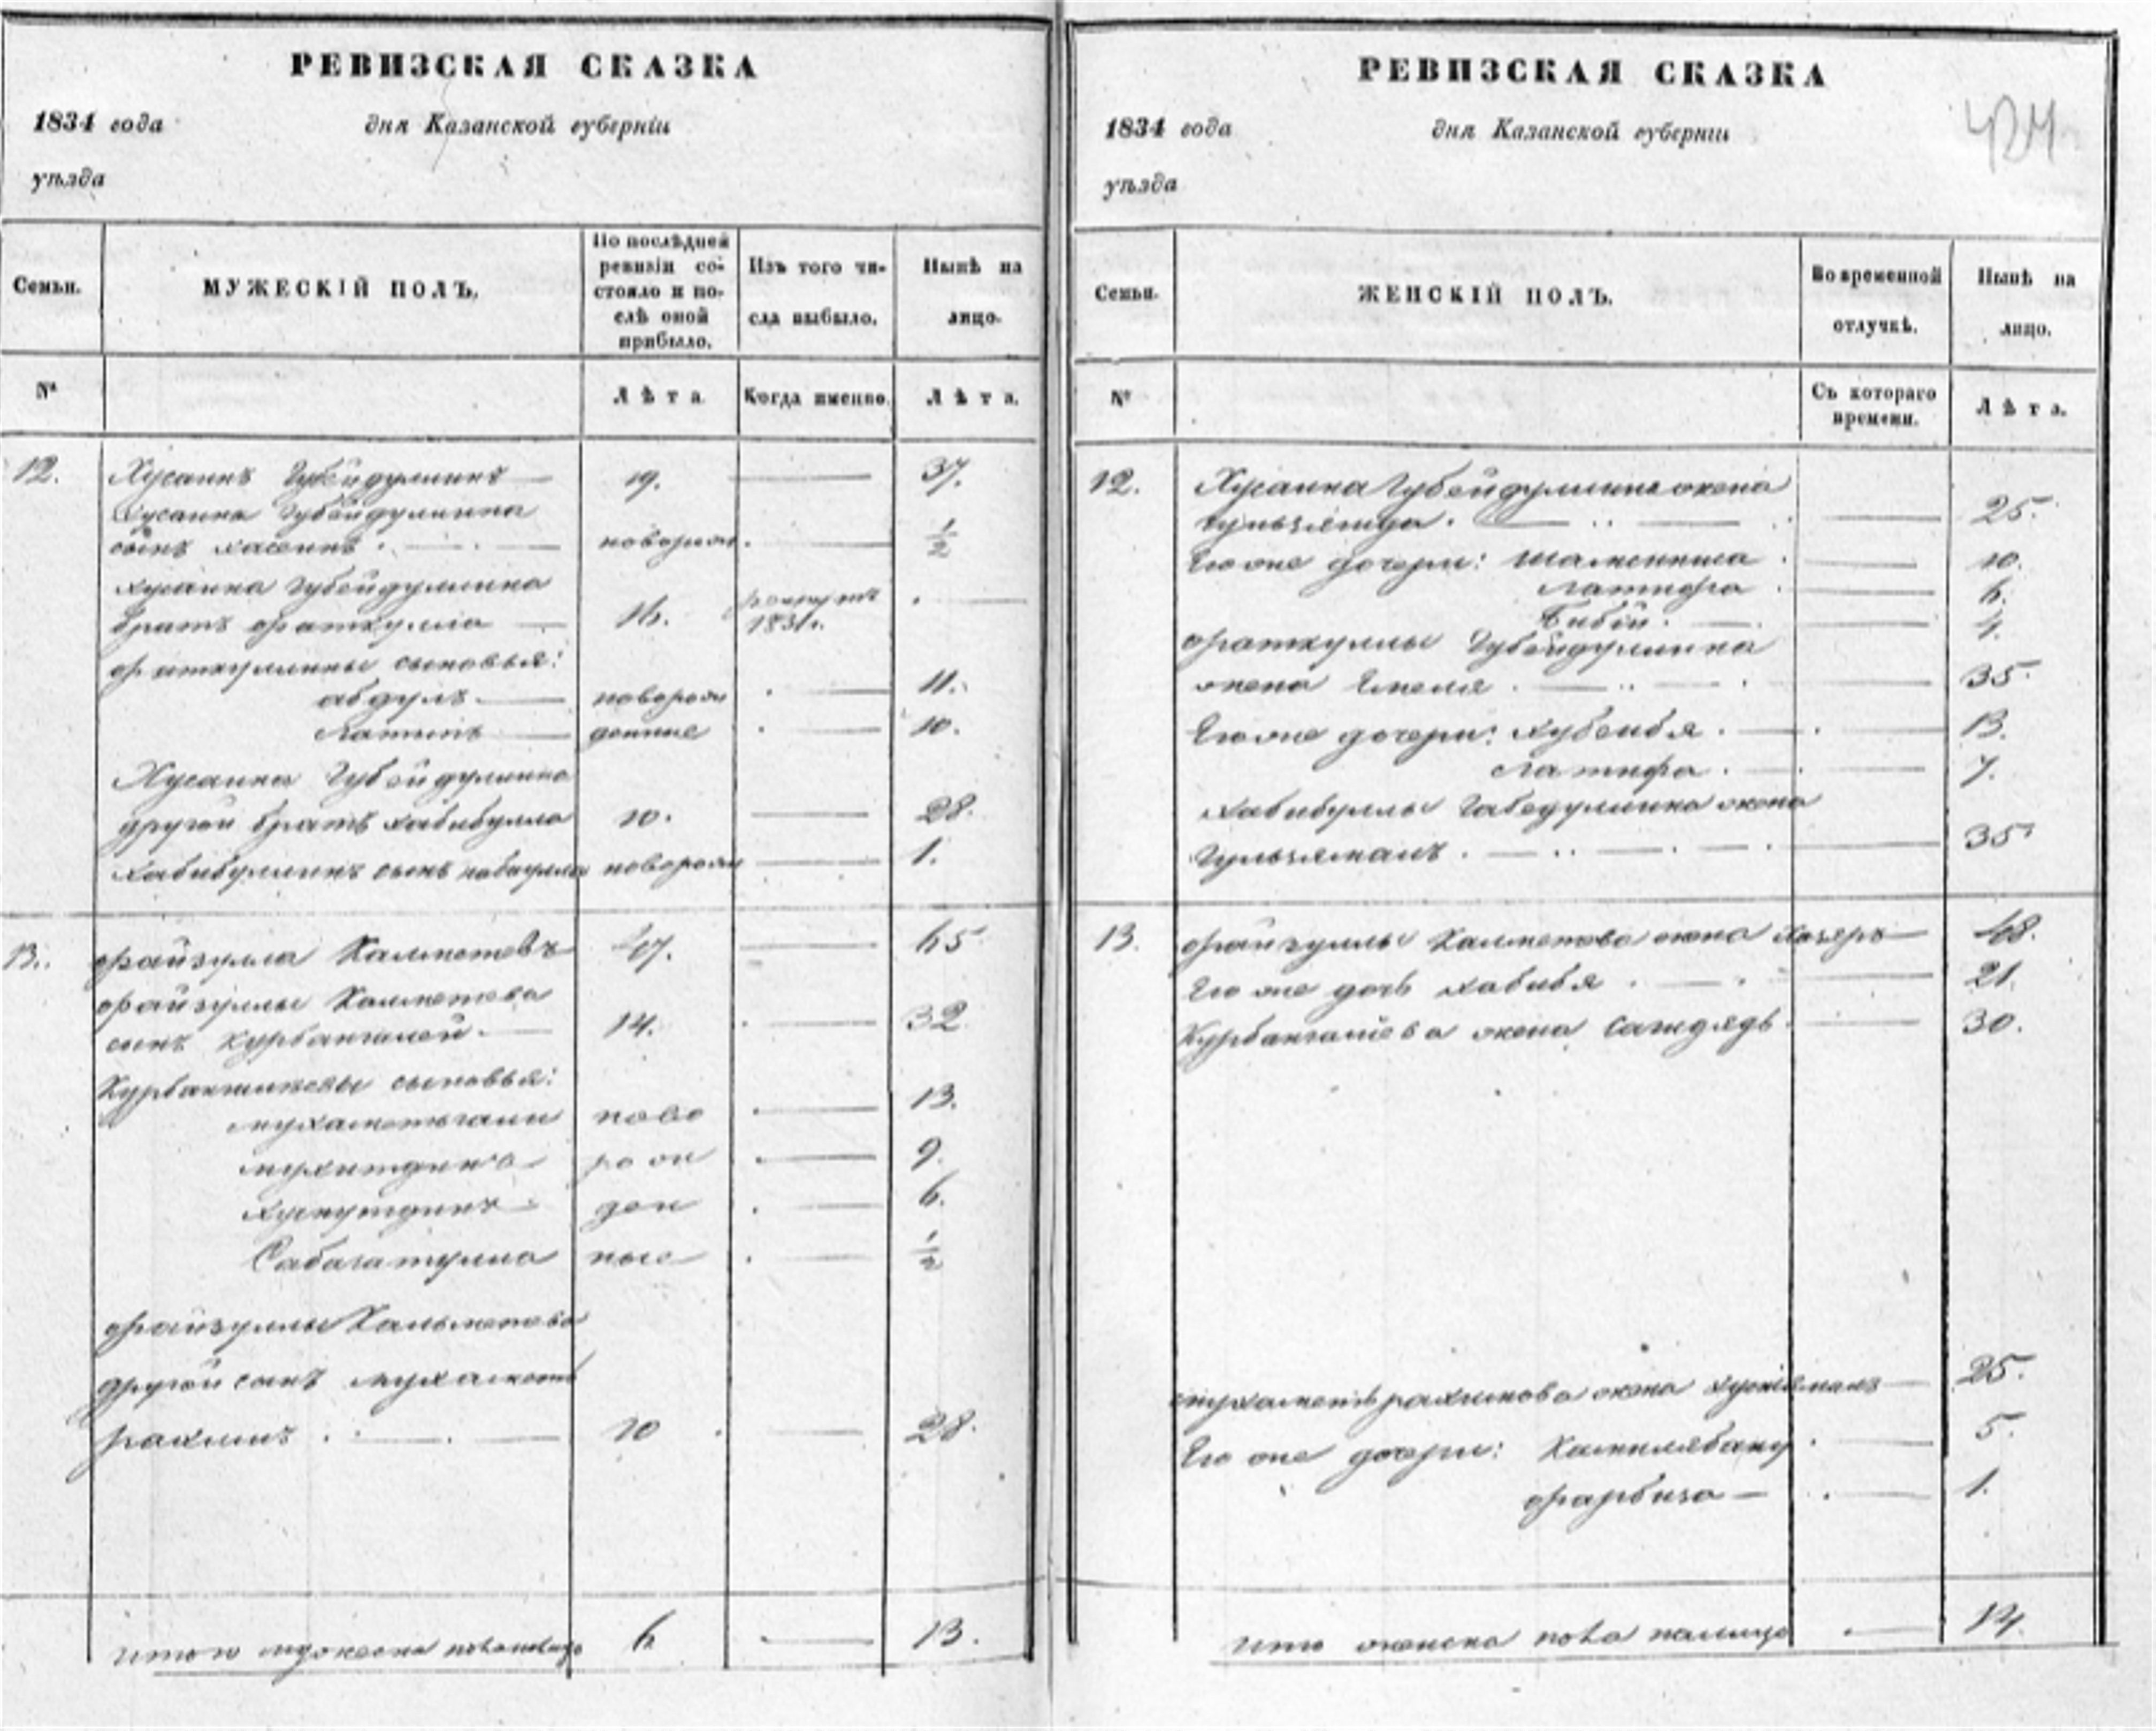 РЕВИЗСКАЯ СКАЗКА
1834 года дня Казанской губерніи
уѣзда
Семьи.
МУЖЕСКІЙ ПОЛЪ.
По послѣдней ревизіи состояло и послѣ оной прибыло.
Изъ того числа выбыло.
Нынѣ на лицо.
№
Лѣта
Когда именно.
Лѣта.
12. Хусаинъ Губейдуллинъ 19. 37.
Хусаина Губейдуллина
сынъ новорож. ½
Хусаина Губейдуллина
братъ фаткулла 16. рекрутъ 1831г.
фаткуллины сыновья:
абдулъ новорож 11.
Латыпъ денные 10.
Хусаина Губейдуллина
другой братъ хабибулла 10. 28.
Хабибуллинъ сынъ новорож 1.
13. файзулла Калметевъ 47. 65
файзуллы Калметева
сынъ Курбангалей 14. 32
сыновья:
мухаметьгали ново 13.
мухитдинъ рож 9.
хуснутдинъ ден 6.
Сабагатулла ные ½
файзуллы Кальметева
другой сынъ мухаметь
рахимъ 10 28.
Итого мужеска пола налицо 6 13.
РЕВИЗСКАЯ СКАЗКА
1834 года дня Казанской губерніи
уѣзда
Семьи.
ЖЕНСКІЙ ПОЛЪ.
Во временной отлучкѣ.
Нынѣ на лицо.
№
Съ котораго времени.
Лѣта.
12. Хусаина Губейдуллина жена
25.
Его же дочери: 10.
Латифа 6.
Биби 4.
фаткуллы Губейдуллина
жена 35.
Его же дочери: хубейбя 13.
Латифа 7.
хабибуллы жена
Гульзяманъ 35
13. файзуллы Калметева жена 48.
Его же дочь хабибя 21.
жена 30.
мухаметьрахимова жена 25.
Его же дочери: Камилябану 5.
1.
Итого женска пола налицо 14.